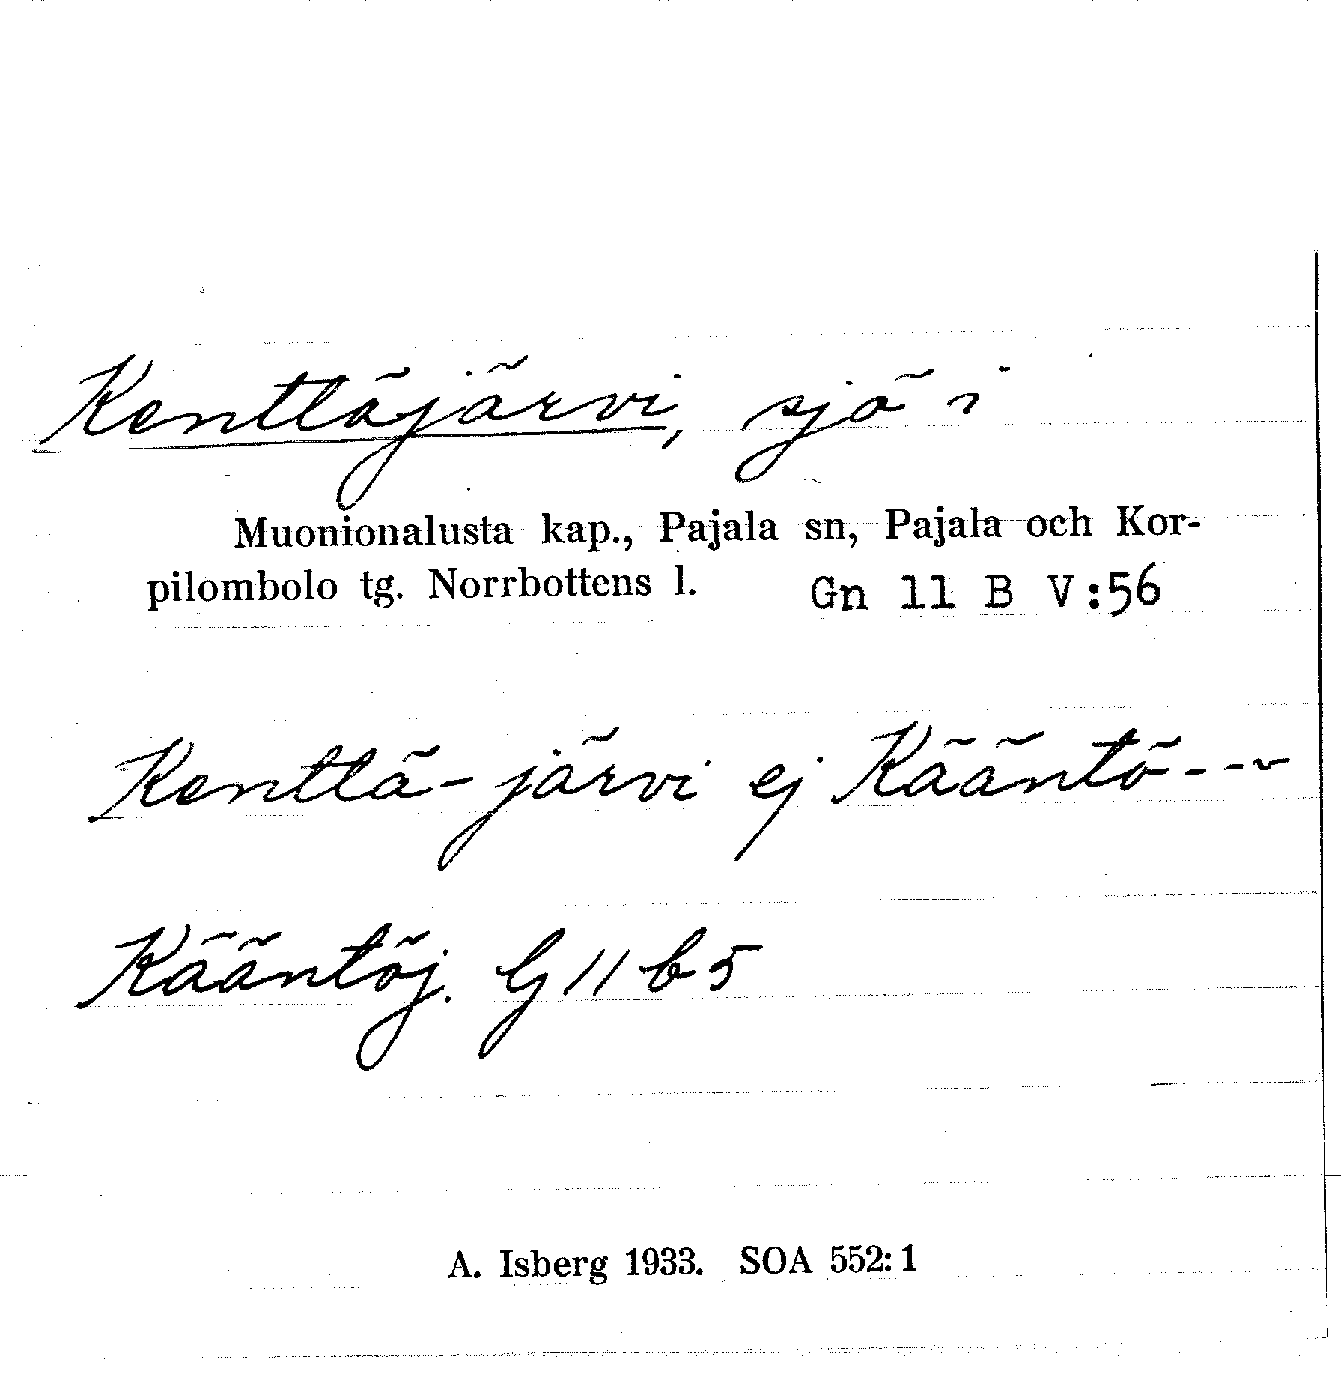 Kenttäjärvi, sjö i
Muonionalusta kap., Pajala sn, Pajala och Kor-
pilombolo tg. Norrbottens l. Gn 11 B V:56
Kenttä-järvi ej Kääntö---
Kääntöj. G 11 b 5
A. Isberg 1933. SOA 552:1